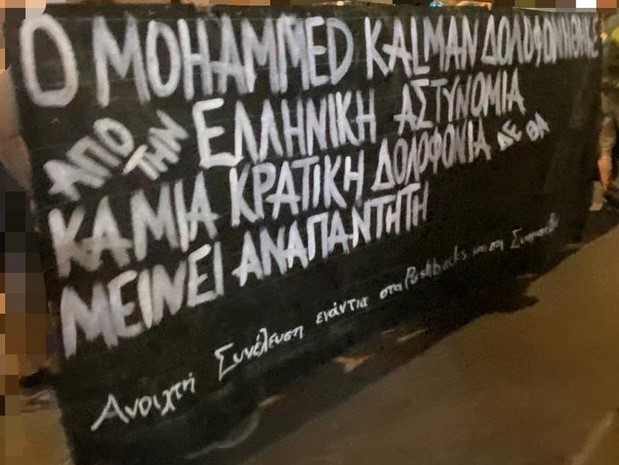 Ο MOHAMMED KALMAN ΔΟΛΟΦΟΝΗΘΗΚΕ
ΑΠΟ ΤΗΝ ΕΛΛΗΝΙΚΗ ΑΣΤΥΝΟΜΙΑ
ΚΑΜΙΑ ΚΡΑΤΙΚΗ ΔΟΛΟΦΟΝΙΑ ΔΕ ΘΑ
ΜΕΙΝΕΙ ΑΝΑΠΑΝΤΗΤΗ
Ανοιχτή Συνέλευση ενάντια στα Pushbacks και τη